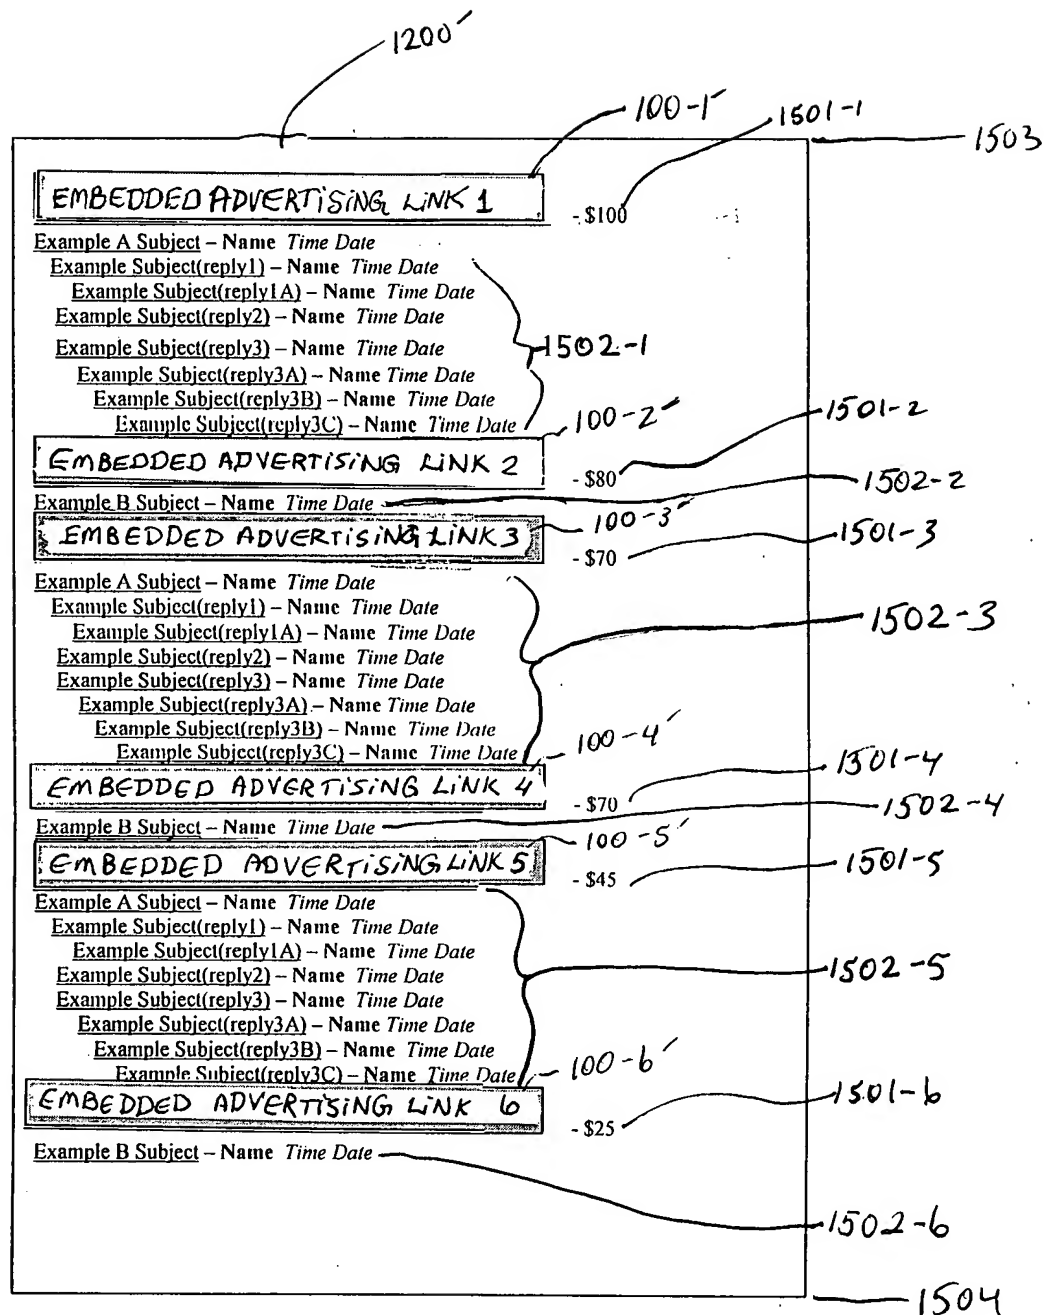 1200′
100-1′ 1501-1
1503
EMBEDDED ADVERTISING LINK 1
- $100
Example A Subject – Name Time Date
Example Subject(reply1) – Name Time Date
Example Subject(reply1A) – Name Time Date
Example Subject(reply2) – Name Time Date
Example Subject(reply3) – Name Time Date
1502-1
Example Subject(reply3A) – Name Time Date
Example Subject(reply3B) – Name Time Date
Example Subject(reply3C) – Name Time Date
100-2′ 1501-2
EMBEDDED ADVERTISING LINK 2
- $80
1502-2
Example B Subject – Name Time Date
100-3′
EMBEDDED ADVERTISING LINK 3
1501-3
- $70
Example A Subject – Name Time Date
Example Subject(reply1) – Name Time Date
1502-3
Example Subject(reply1A) – Name Time Date
Example Subject(reply2) – Name Time Date
Example Subject(reply3) – Name Time Date
Example Subject(reply3A) – Name Time Date
Example Subject(reply3B) – Name Time Date
Example Subject(reply3C) – Name Time Date
100-4′
1501-4
EMBEDDED ADVERTISING LINK 4
- $70
1502-4
Example B Subject – Name Time Date
100-5′
EMBEDDED ADVERTISING LINK 5
1501-5
- $45
Example A Subject – Name Time Date
Example Subject(reply1) – Name Time Date
Example Subject(reply1A) – Name Time Date
Example Subject(reply2) – Name Time Date
1502-5
Example Subject(reply3) – Name Time Date
Example Subject(reply3A) – Name Time Date
Example Subject(reply3B) – Name Time Date
Example Subject(reply3C) – Name Time Date
100-6′
1501-6
EMBEDDED ADVERTISING LINK 6
- $25
Example B Subject – Name Time Date
1502-6
1504